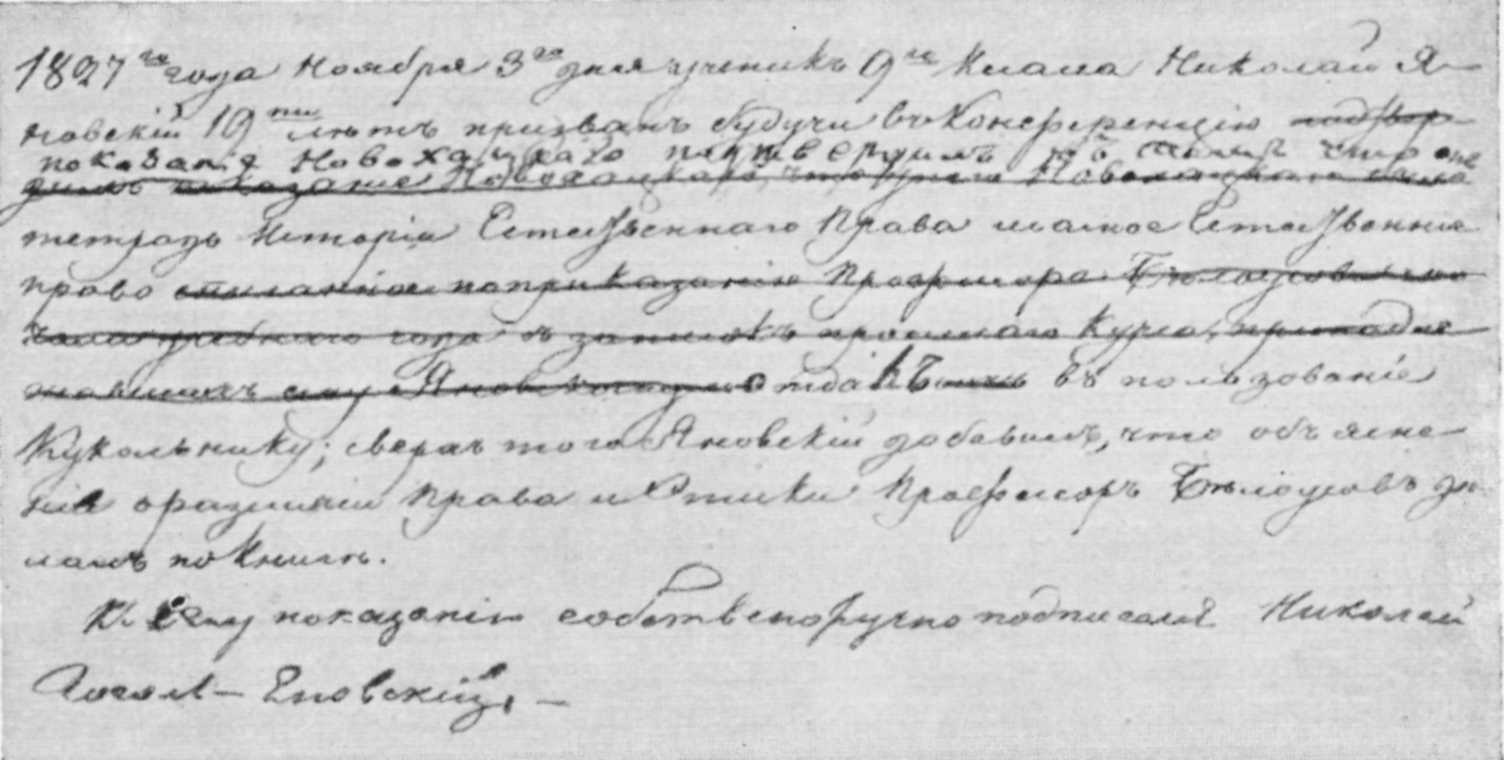 1827 го года Ноября 3 го дня ученикъ 9 го класса Николай Я-
новскій 19 ти лѣтъ призванъ будучи въ Конференцію подтвер-
показанія Новохацкаго подтвердилъ въ томъ что онъ
дилъ показаніе Новохацкаго, что
тетрадь Исторіи Естественнаго Права и самое Естественное
право списанное по приказанію Профессора Бѣлоусова
учебнаго года съ записокъ прошлаго Курса, принадле
жавшихъ ему Яновскому отдалъ ихъ въ пользованіе
Кукольнику; сверхъ того Яновскій добавилъ, что объясне-
нія о различіи права и Этики Профессоръ Бѣлоусовъ дѣ
лалъ по книгѣ.
К сему показанію собственоручно подписался Николай
Гоголь – Яновскій. –